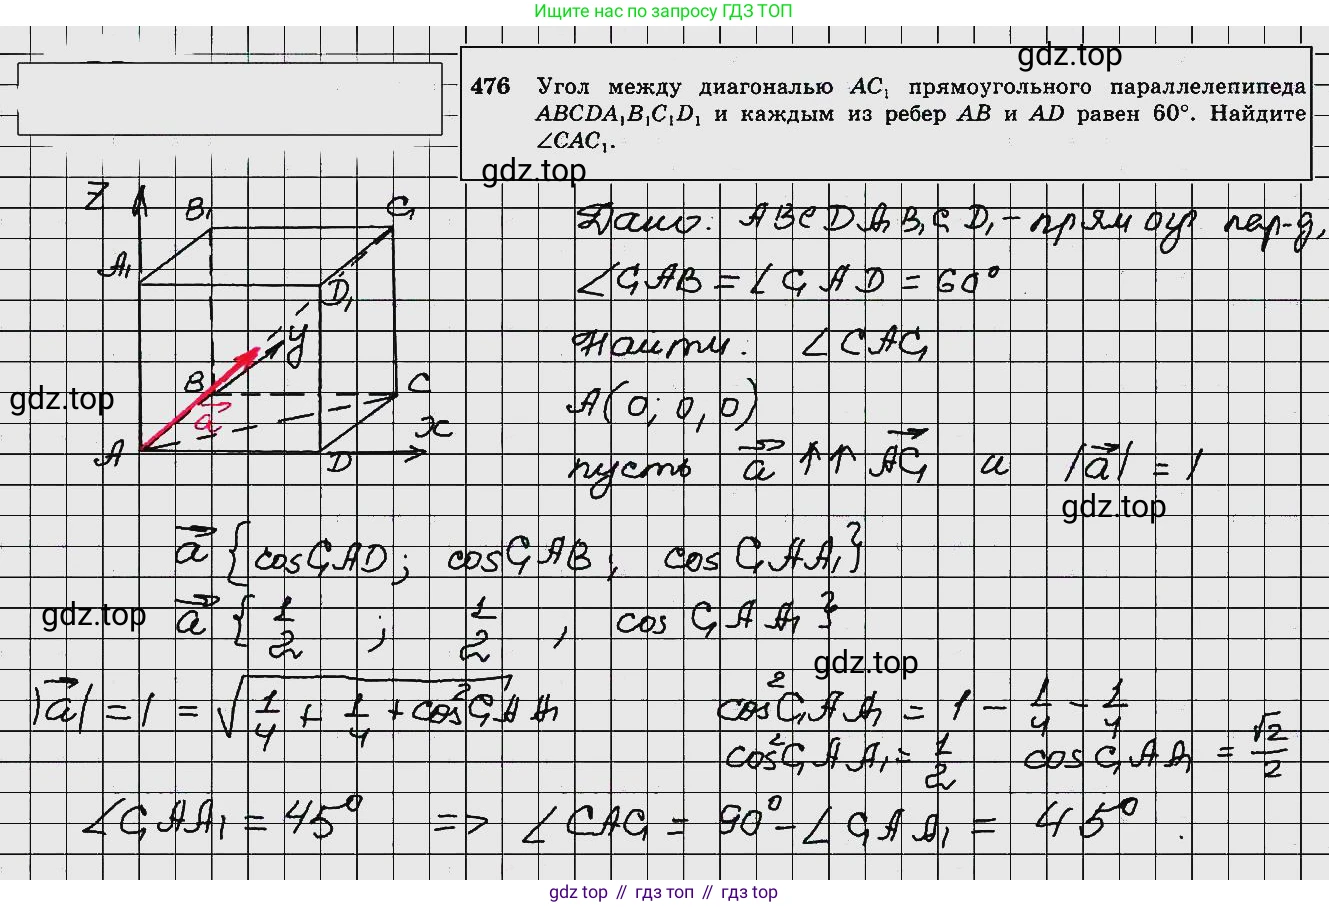 Ищите нас по запросу ГДЗ ТОП
gdz.top
476 Угол между диагональю AC₁ прямоугольного параллелепипеда
ABCDA₁B₁C₁D₁ и каждым из ребер AB и AD равен 60°. Найдите
∠CAC₁.
gdz.top
Z B₁ C₁
A₁ D₁
y
B C
a⃗ x
A D
gdz.top
Дано: ABCDA₁B₁C₁D₁ - прямоуг пар-д,
∠C₁AB = ∠C₁AD = 60°
Найти: ∠CAC₁
A(0; 0, 0)
пусть a⃗ ↑↑ AC₁⃗ и |a⃗| = 1
gdz.top
a⃗ {cosC₁AD; cosC₁AB, cosC₁AA₁}
gdz.top
a⃗ {1/2; 1/2, cosC₁AA₁}
gdz.top
|a⃗| = 1 = √(1/4 + 1/4 + cos²C₁AA₁) cos²C₁AA₁ = 1 - 1/4 - 1/4
cos²C₁AA₁ = 1/2 cosC₁AA₁ = √2/2
∠C₁AA₁ = 45° => ∠CAC₁ = 90° - ∠C₁AA₁ = 45°.
gdz top // гдз топ // gdz top